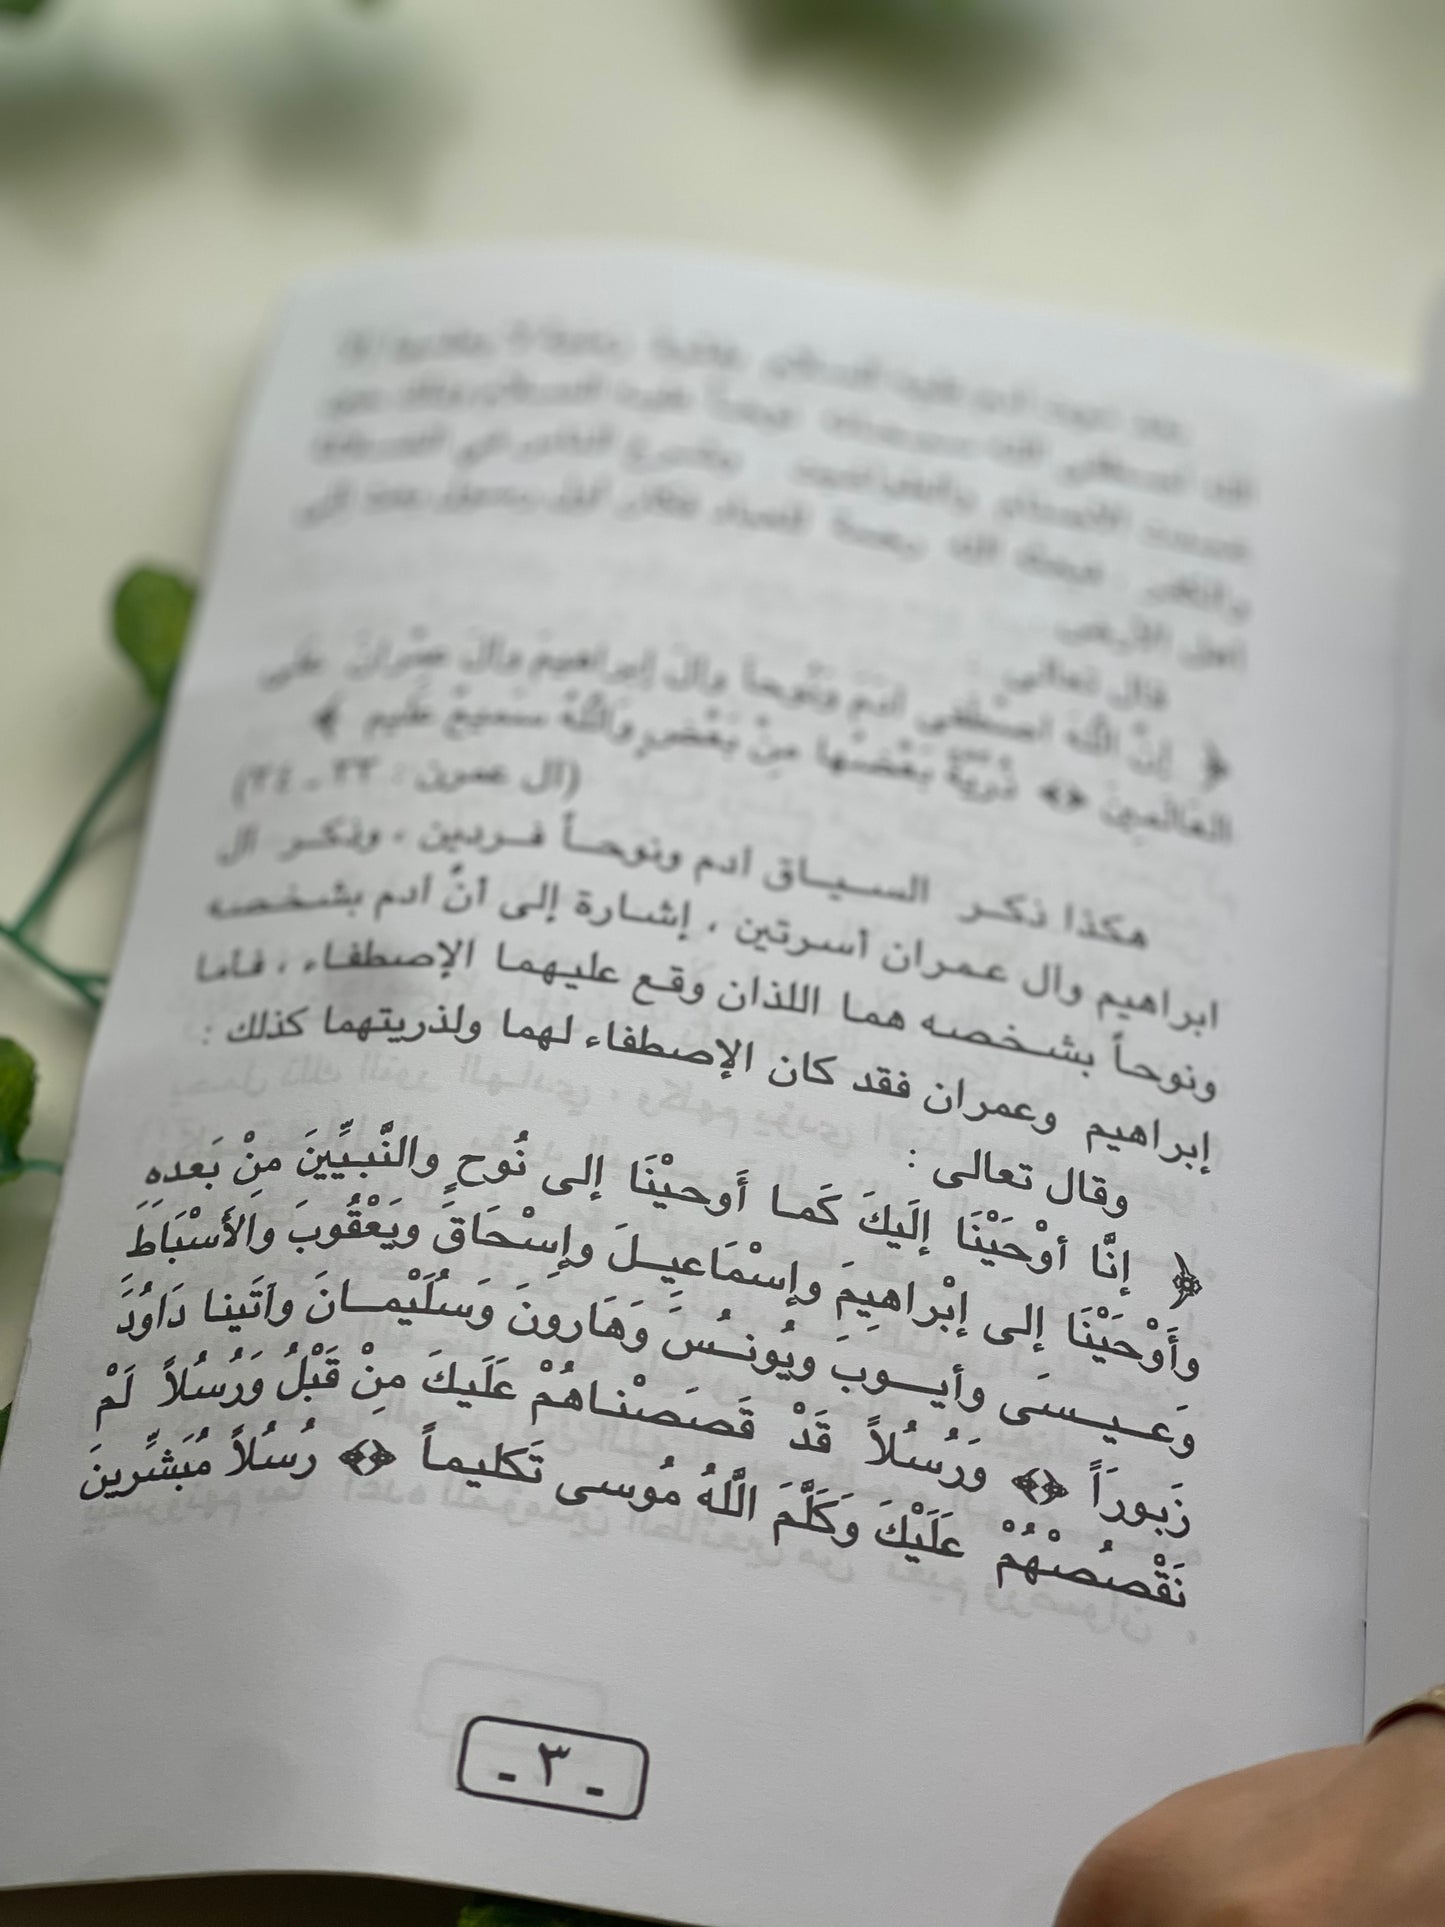 قال تعالى :
﴿ إنَّ اللَّهَ اصْطَفى آدَمَ ونُوحاً وآلَ إبراهيمَ وآلَ عِمْرانَ عَلَى
العَالَمينَ ﴿﴾ ذُرِّيَّةً بَعْضُها مِنْ بَعْضٍ وَاللَّهُ سَميعٌ عَليم ﴾
(آل عمرن : ٣٣ ـ ٣٤)
هكذا ذكر السياق آدم ونوحاً فردين ، وذكر آل
ابراهيم وآل عمران أسرتين ، إشارة إلى أنَّ آدم بشخصه
ونوحاً بشخصه هما اللذان وقع عليهما الإصطفاء ، فأما
إبراهيم وعمران فقد كان الإصطفاء لهما ولذريتهما كذلك :
وقال تعالى :
﴿ إنَّا أوْحَيْنَا إلَيكَ كَما أَوحيْنَا إلى نُوحٍ والنَّبيِّينَ منْ بَعدهِ
وأَوْحَيْنَا إلى إبْراهِيمَ وإسْمَاعيلَ وإسْحَاقَ ويَعْقُوبَ والأَسْبَاطَ
وَعيسَى وأيوبَ ويُونسُ وَهَارونَ وَسُلَيْمانَ وآتَينا دَاوُدَ
زَبورَاً ﴿﴾ وَرُسُلاً قَدْ قَصَصْناهُمْ عَلَيكَ مِنْ قَبْلُ وَرُسُلاً لَمْ
نَقْصُصْهُمْ عَلَيْكَ وَكَلَّمَ اللَّهُ مُوسى تَكليماً ﴿﴾ رُسُلاً مُبَشِّرينَ
ـ ٣ ـ